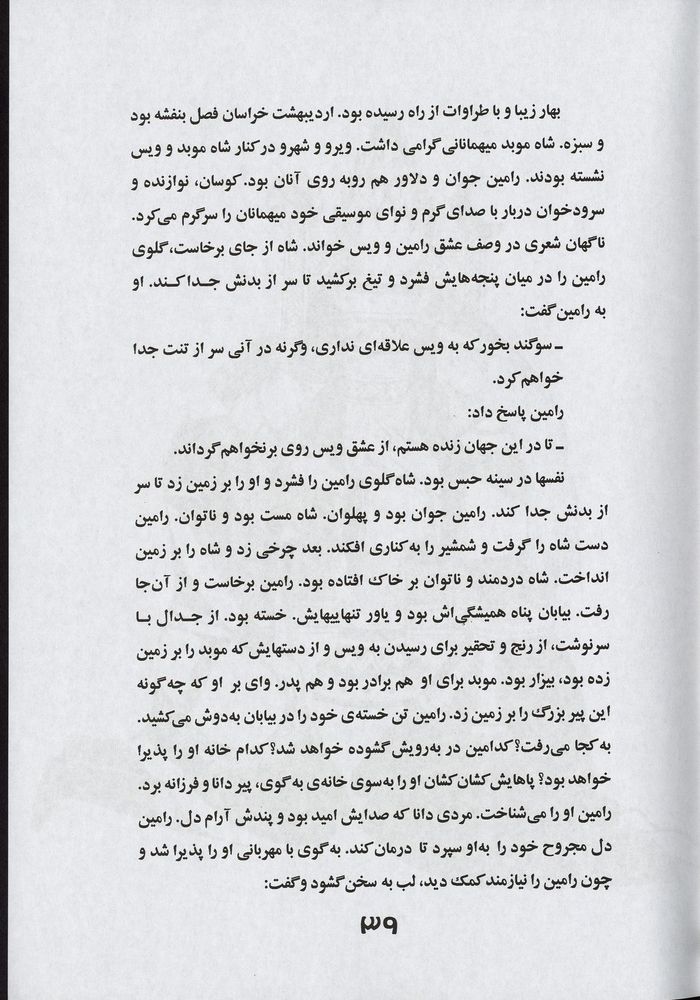 بهار زیبا و با طراوات از راه رسیده بود. اردیبهشت خراسان فصل بنفشه بود
و سبزه. شاه موبد میهمانانی گرامی داشت. ویرو و شهرو در کنار شاه موبد و ویس
نشسته بودند. رامین جوان و دلاور هم روبه روی آنان بود. کوسان، نوازنده و
سرودخوان دربار با صدای گرم و نوای موسیقی خود میهمانان را سرگرم می‌کرد.
ناگهان شعری در وصف عشق رامین و ویس خواند. شاه از جای برخاست، گلوی
رامین را در میان پنجه‌هایش فشرد و تیغ برکشید تا سر از بدنش جدا کند. او
به رامین گفت:
ـ سوگند بخور که به ویس علاقه‌ای نداری، وگرنه در آنی سر از تنت جدا
خواهم کرد.
رامین پاسخ داد:
ـ تا در این جهان زنده هستم، از عشق ویس روی برنخواهم گرداند.
نفسها در سینه حبس بود. شاه گلوی رامین را فشرد و او را بر زمین زد تا سر
از بدنش جدا کند. رامین جوان بود و پهلوان. شاه مست بود و ناتوان. رامین
دست شاه را گرفت و شمشیر را به کناری افکند. بعد چرخی زد و شاه را بر زمین
انداخت. شاه دردمند و ناتوان بر خاک افتاده بود. رامین برخاست و از آن‌جا
رفت. بیابان پناه همیشگی‌اش بود و یاور تنهاییهایش. خسته بود. از جدال با
سرنوشت، از رنج و تحقیر برای رسیدن به ویس و از دستهایش که موبد را بر زمین
زده بود، بیزار بود. موبد برای او هم برادر بود و هم پدر. وای بر او که چه گونه
این پیر بزرگ را بر زمین زد. رامین تن خسته‌ی خود را در بیابان به‌دوش می‌کشید.
به کجا می‌رفت؟ کدامین در به‌رویش گشوده خواهد شد؟ کدام خانه او را پذیرا
خواهد بود؟ پاهایش کشان کشان او را به‌سوی خانه‌ی به‌گوی، پیر دانا و فرزانه برد.
رامین او را می‌شناخت. مردی دانا که صدایش امید بود و پندش آرام دل. رامین
دل مجروح خود را به‌او سپرد تا درمان کند. به‌گوی با مهربانی او را پذیرا شد و
چون رامین را نیازمند کمک دید، لب به سخن گشود و گفت:
۳۹